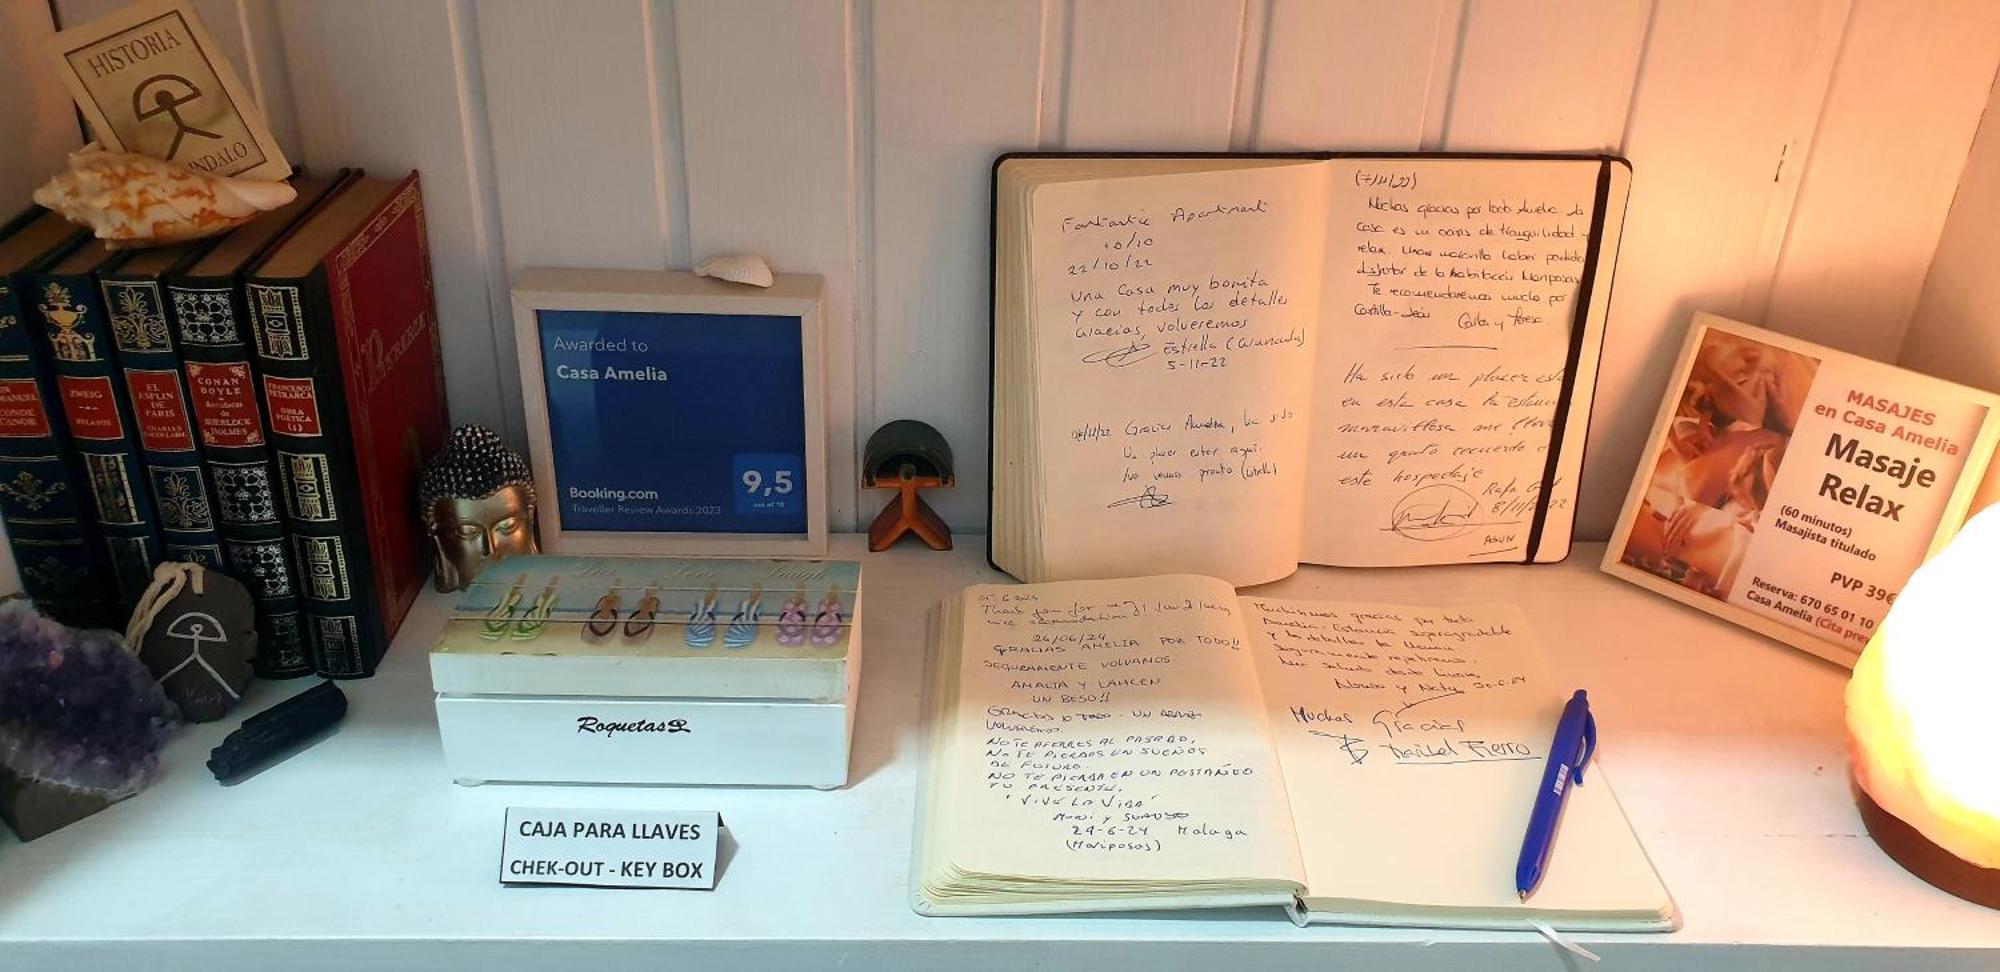 HISTORIA
INDALO
ZWEIG
RELATOS
EL
ESPLIN
DE
PARIS
CONAN
DOYLE
Aventuras
de
SHERLOCK
HOLMES
FRANCESCO
PETRARCA
OBRA
POETICA
(I)
Awarded to
Casa Amelia
9,5
out of 10
Booking.com
Traveller Review Awards 2023
Live Love Laugh
Roquetas
CAJA PARA LLAVES
CHEK-OUT - KEY BOX
Fantastic Apartment
10/10
22/10/22
Una Casa muy bonita
y con todos los detalles
Gracias, volveremos
Estrella (Granada)
5-11-22
Gracias Amelia, ha sido
un placer estar aquí.
Nos vemos pronto
(7/11/22)
Muchas gracias por todo Amelia. La
casa es un oasis de tranquilidad y
relax. Una maravilla haber podido
disfrutar de la habitación Mariposas
Te recomendaremos mucho por
Castilla-León Carlos y Teresa.
Ha sido un placer
en esta casa la estancia
maravillosa me llevo
un grato recuerdo
este hospedaje
Rafa
8/11/22
ASUN
Thank you for
26/06/24
GRACIAS AMELIA POR TODO!!
SEGURAMENTE VOLVAMOS
AMALIA Y LAHCEN
UN BESO!!
GRACIAS
NO TE AFERRES AL PASADO,
NO TE PIERDAS EN SUEÑOS
DE FUTURO.
NO TE PIERDA EN UN PESTAÑEO
TU PRESENTE.
"VIVE LA VIDA"
29-6-24 Malaga
(Mariposas)
Muchísimas gracias por todo
Amelia. Estancia superagradable
y los detalles la llenan
Seguramente repetiremos.
Un saludo desde
Alonso y Naty 30-6-24
Muchas Gracias
Maribel Fierro
MASAJES
en Casa Amelia
Masaje
Relax
(60 minutos)
Masajista titulado
PVP 39€
Reserva: 670 65 01 10
Casa Amelia (Cita prev